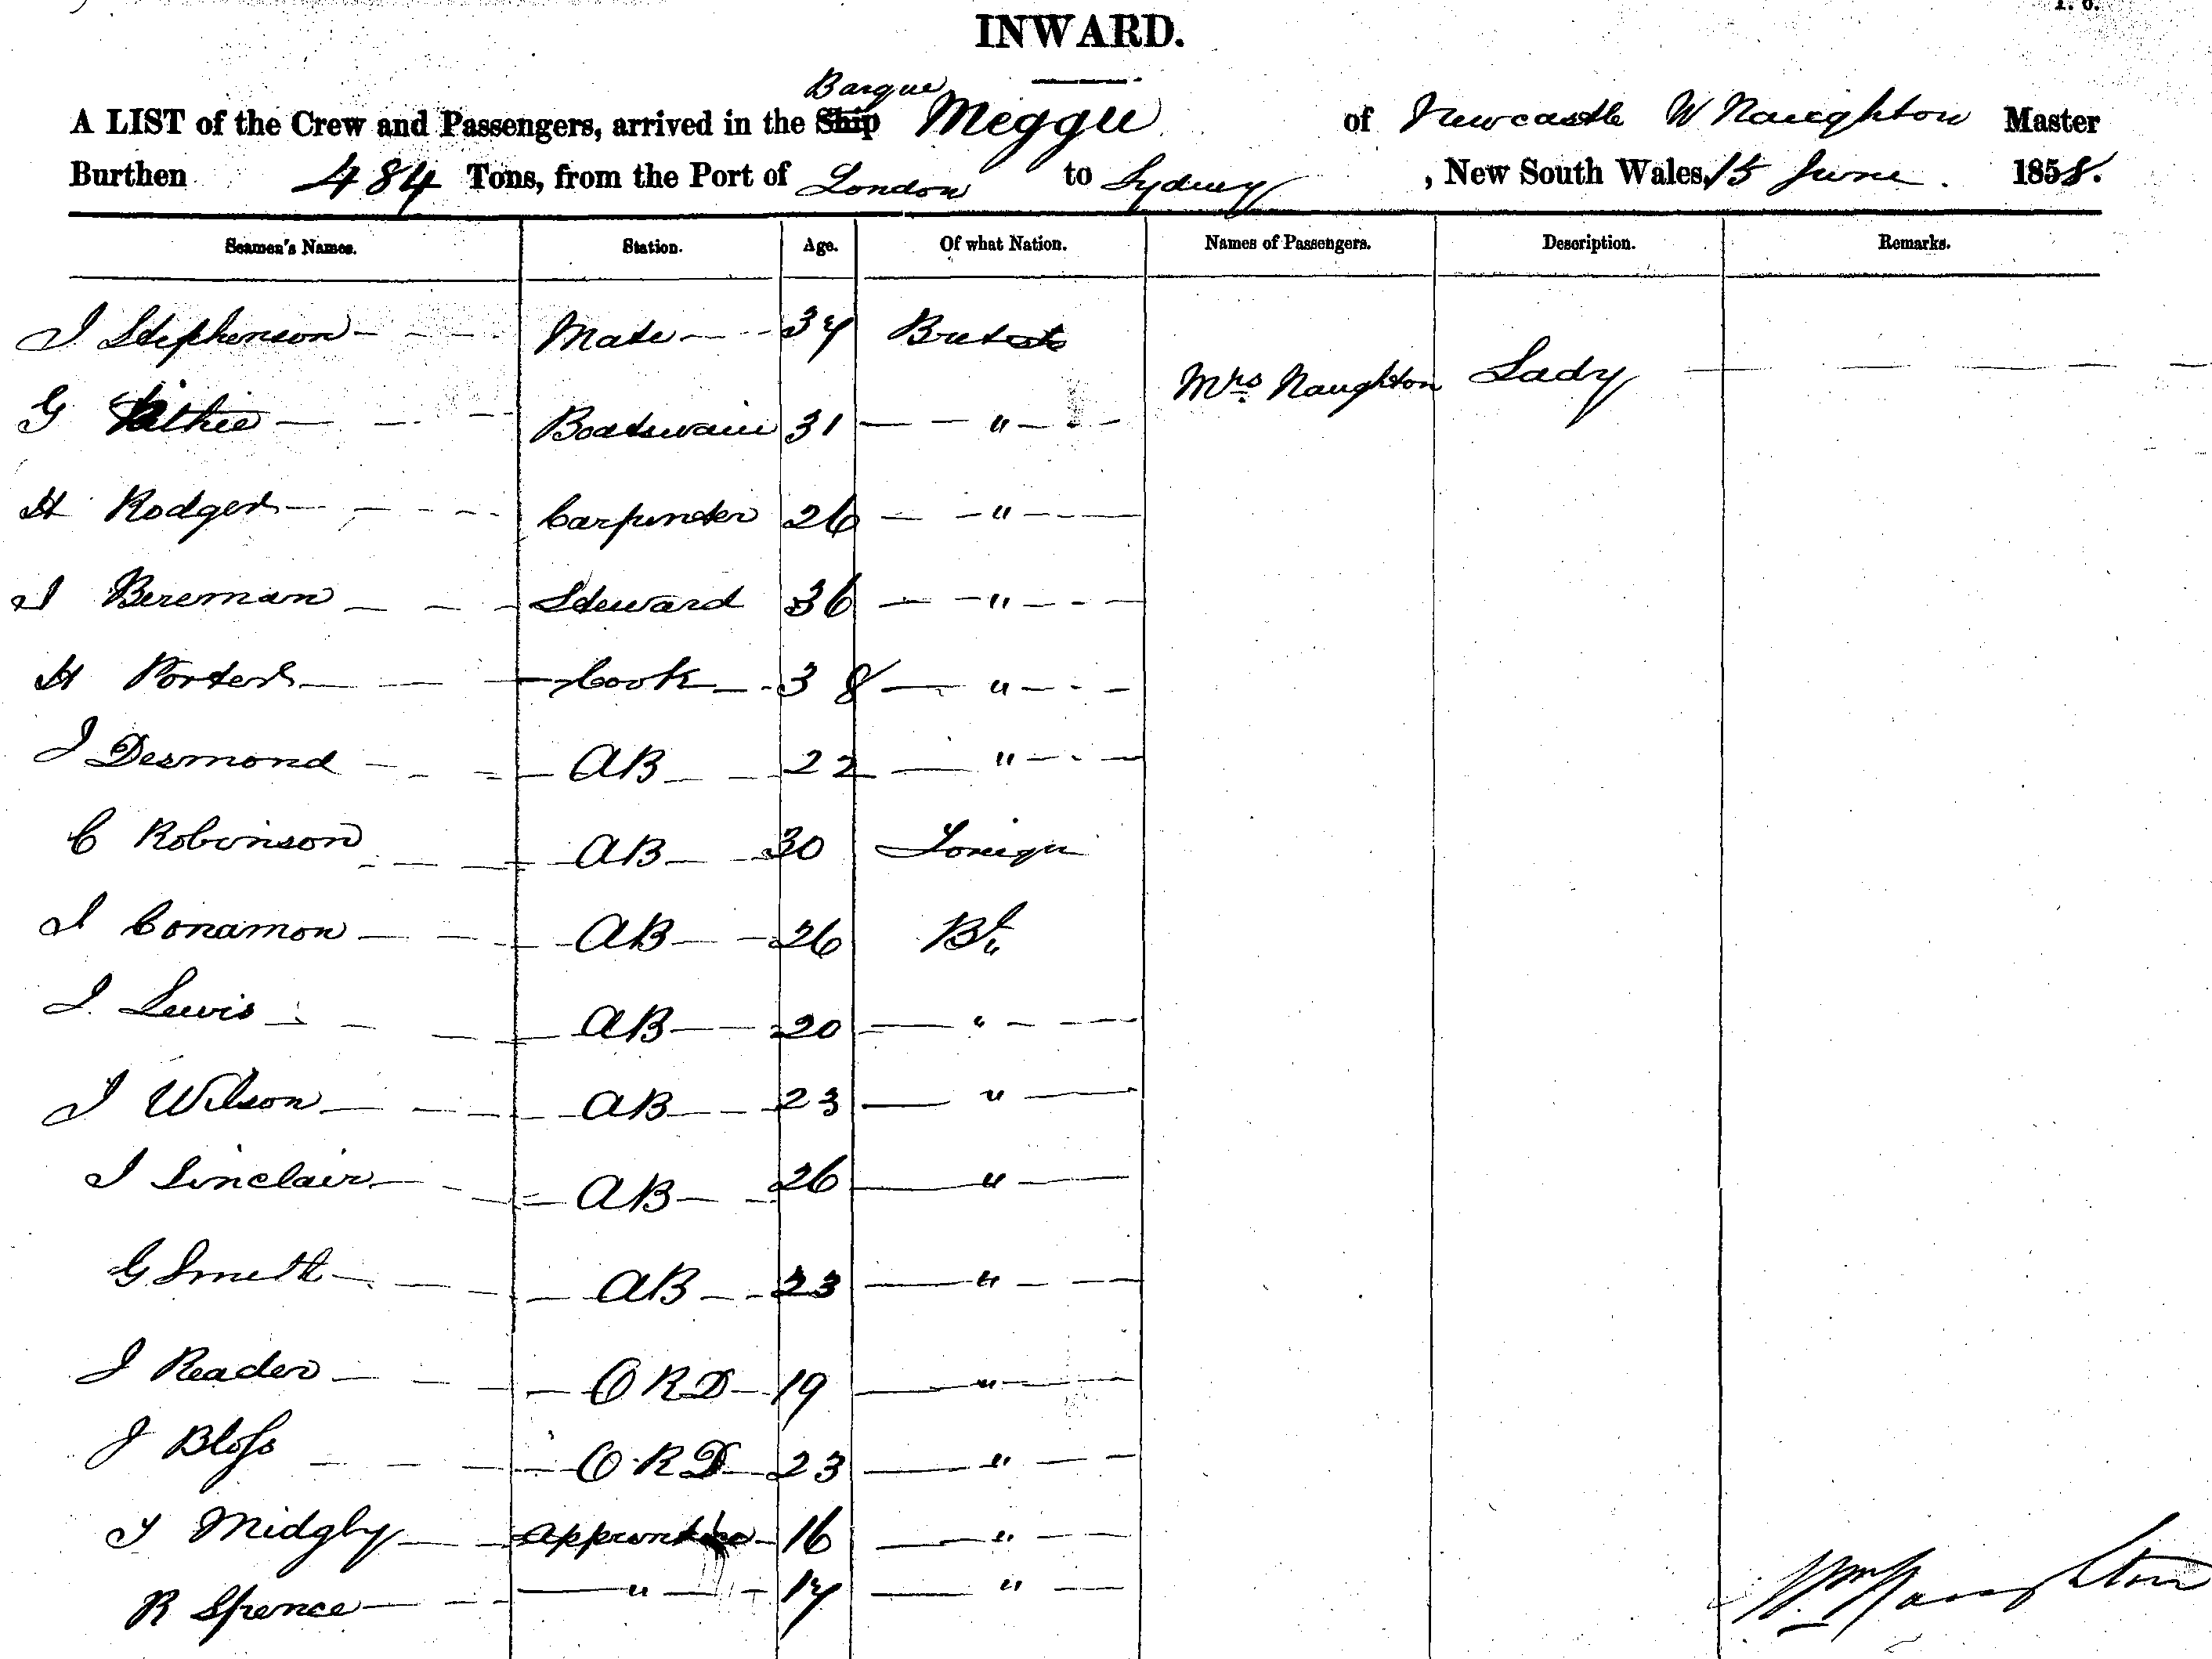 INWARD.
Barque
A LIST of the Crew and Passengers, arrived in the Ship Meggie of Newcastle W Naughton Master
Burthen 484 Tons, from the Port of London to Sydney, New South Wales, 15 June. 1858.
Seamen's Names. Station. Age. Of what Nation. Names of Passengers. Description. Remarks.
J Stephenson Mate 37 British
Mrs Naughton Lady
G Boatswain 31 "
H Rodgers Carpenter 26 "
J Bereman Steward 36 "
H Porter Cook 38 "
J Desmond AB 22 "
C Robinson AB 30 Foreign
J Conamon AB 26 Bt
J. Lewis AB 20 "
J Wilson AB 23 "
J Sinclair AB 26 "
G Smith AB 23 "
J Reader ORD 19 "
J Bloss ORD 23 "
T Midgby Apprentice 16 "
R Spence " 17 "
Wm Naughton